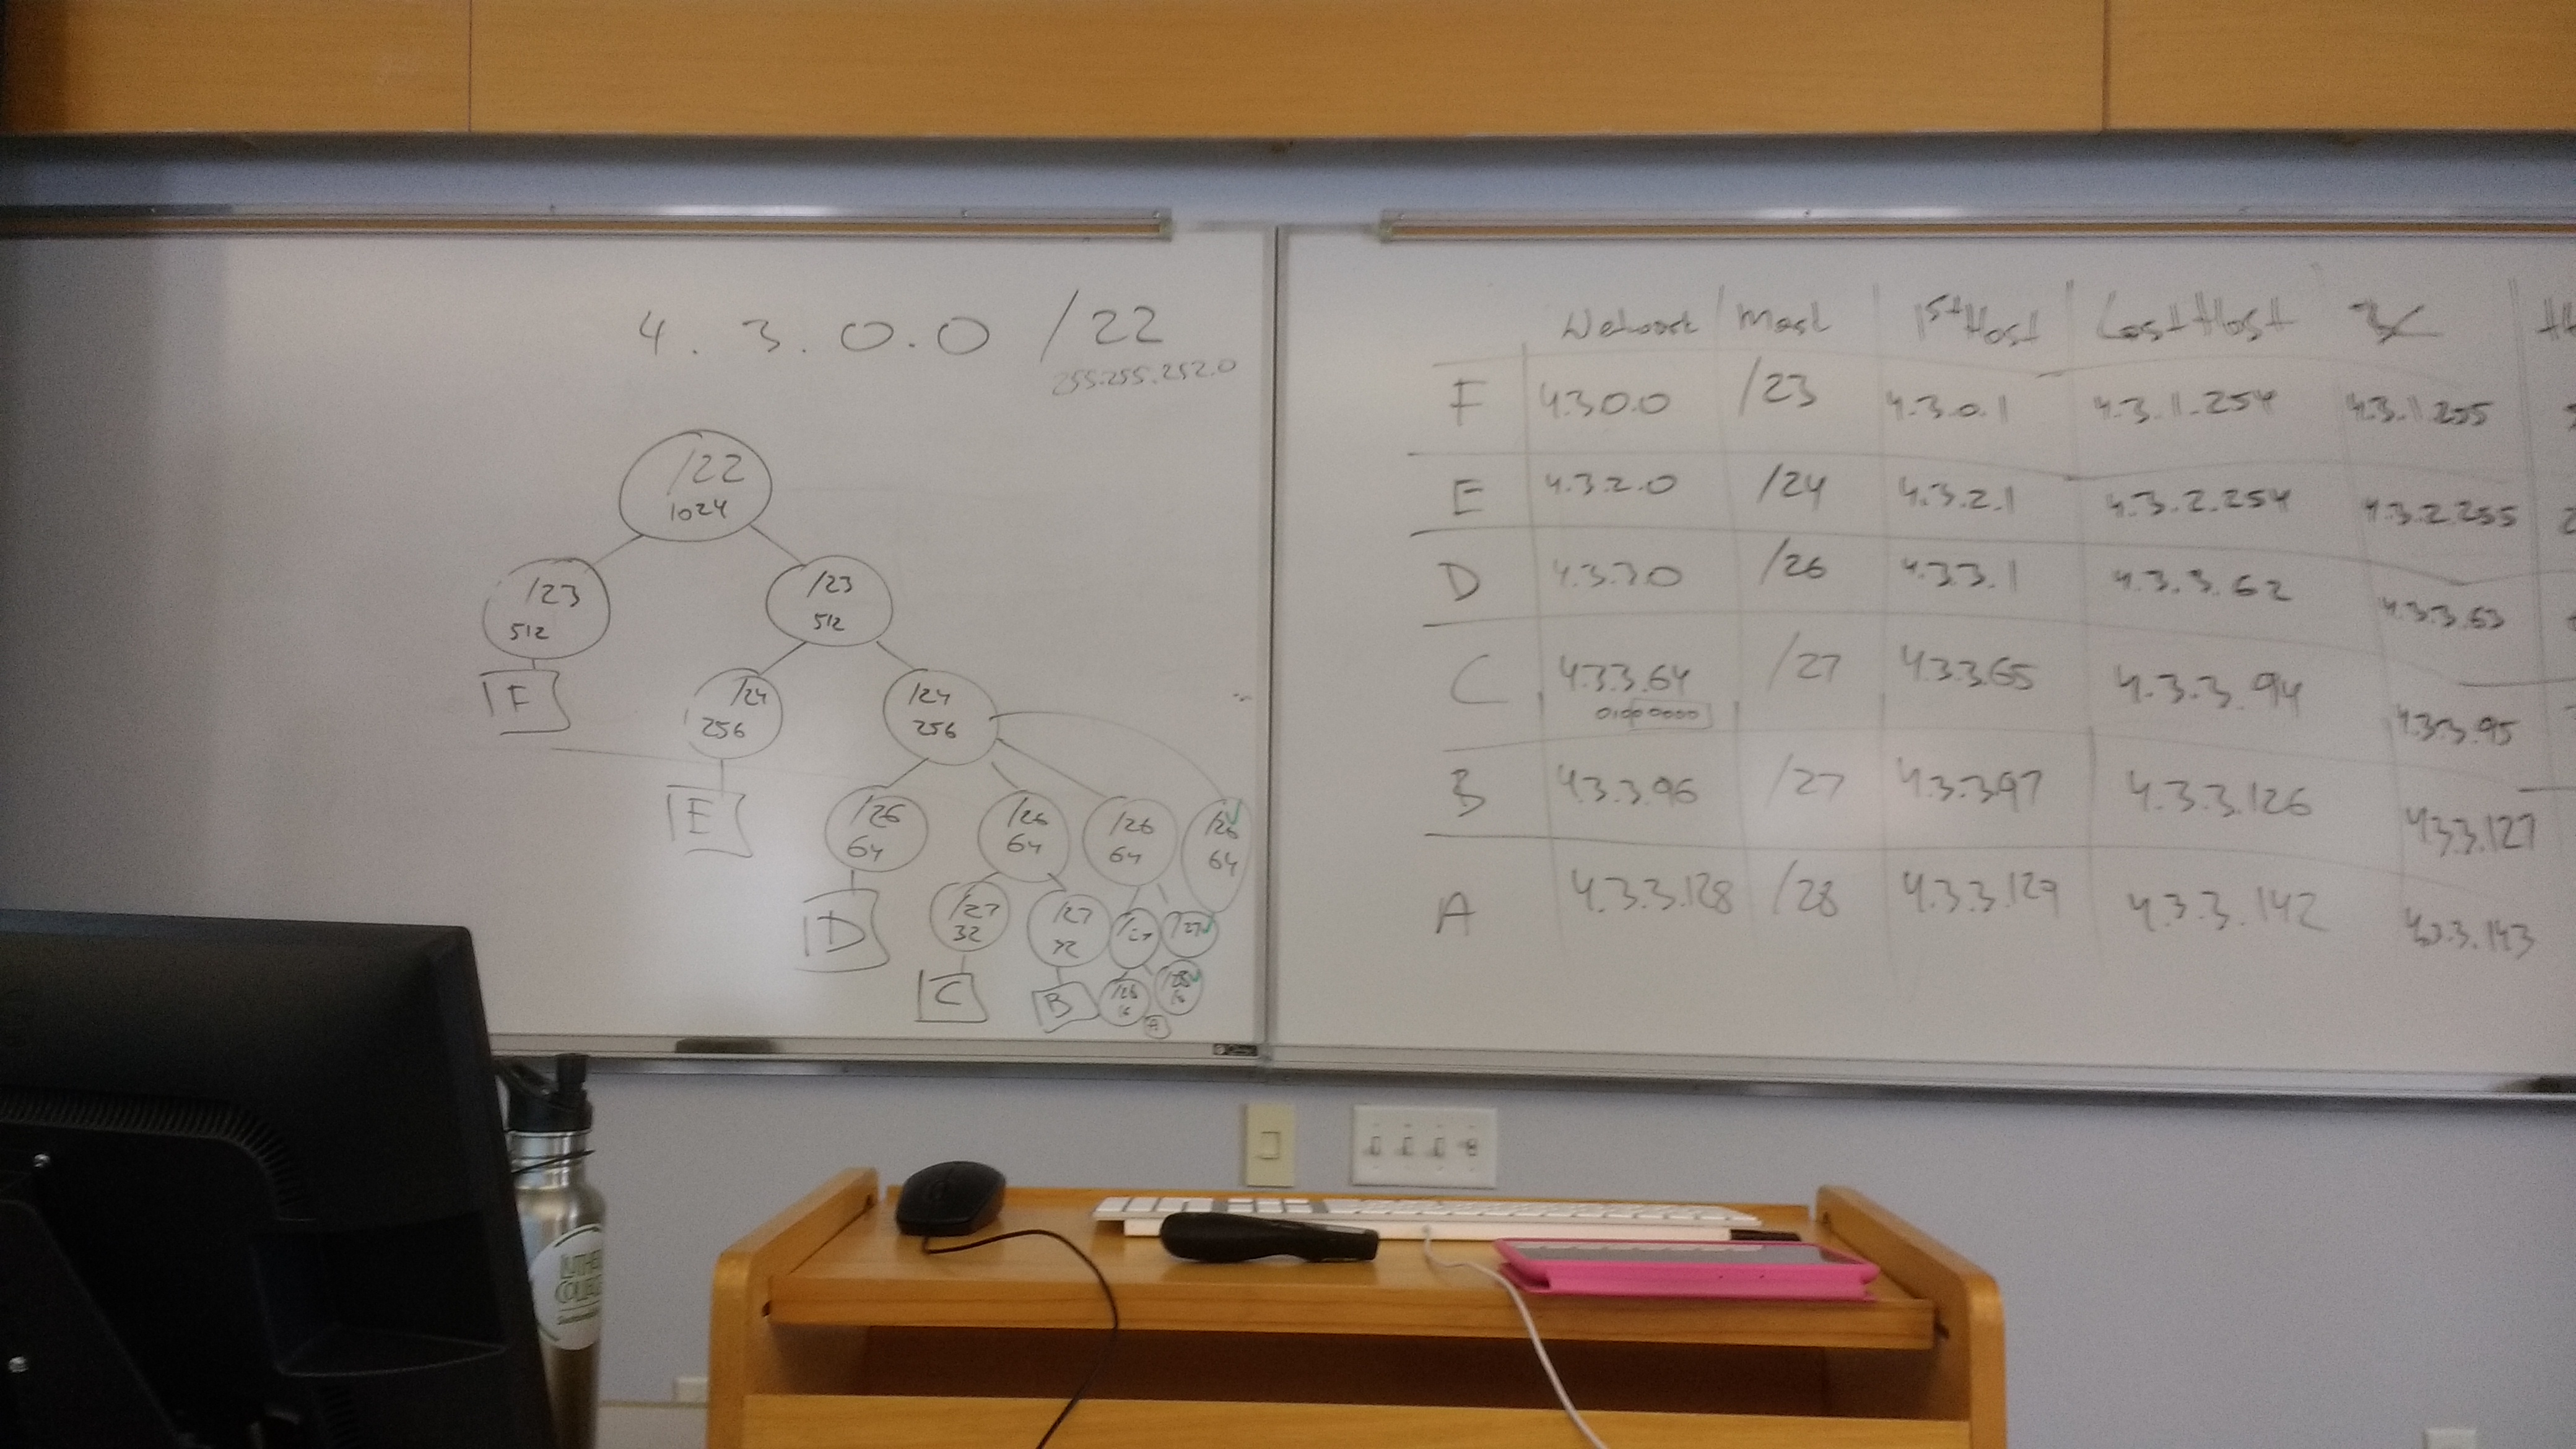 4.3.0.0 /22
255.255.252.0
/22
1024
/23
512
/23
512
F
/24
256
/24
256
E
/26
64
/26
64
/26
64
/26
64
D
/27
32
/27
32
/27
/27
C
B
/28
16
/28
16
A
Network Mask 1st Host Last Host BC
F 4.3.0.0 /23 4.3.0.1 4.3.1.254 4.3.1.255
E 4.3.2.0 /24 4.3.2.1 4.3.2.254 4.3.2.255
D 4.3.3.0 /26 4.3.3.1 4.3.3.62 4.3.3.63
C 4.3.3.64 /27 4.3.3.65 4.3.3.94 4.3.3.95
01000000
B 4.3.3.96 /27 4.3.3.97 4.3.3.126 4.3.3.127
A 4.3.3.128 /28 4.3.3.129 4.3.3.142 4.3.3.143
LUTHER
COLLEGE